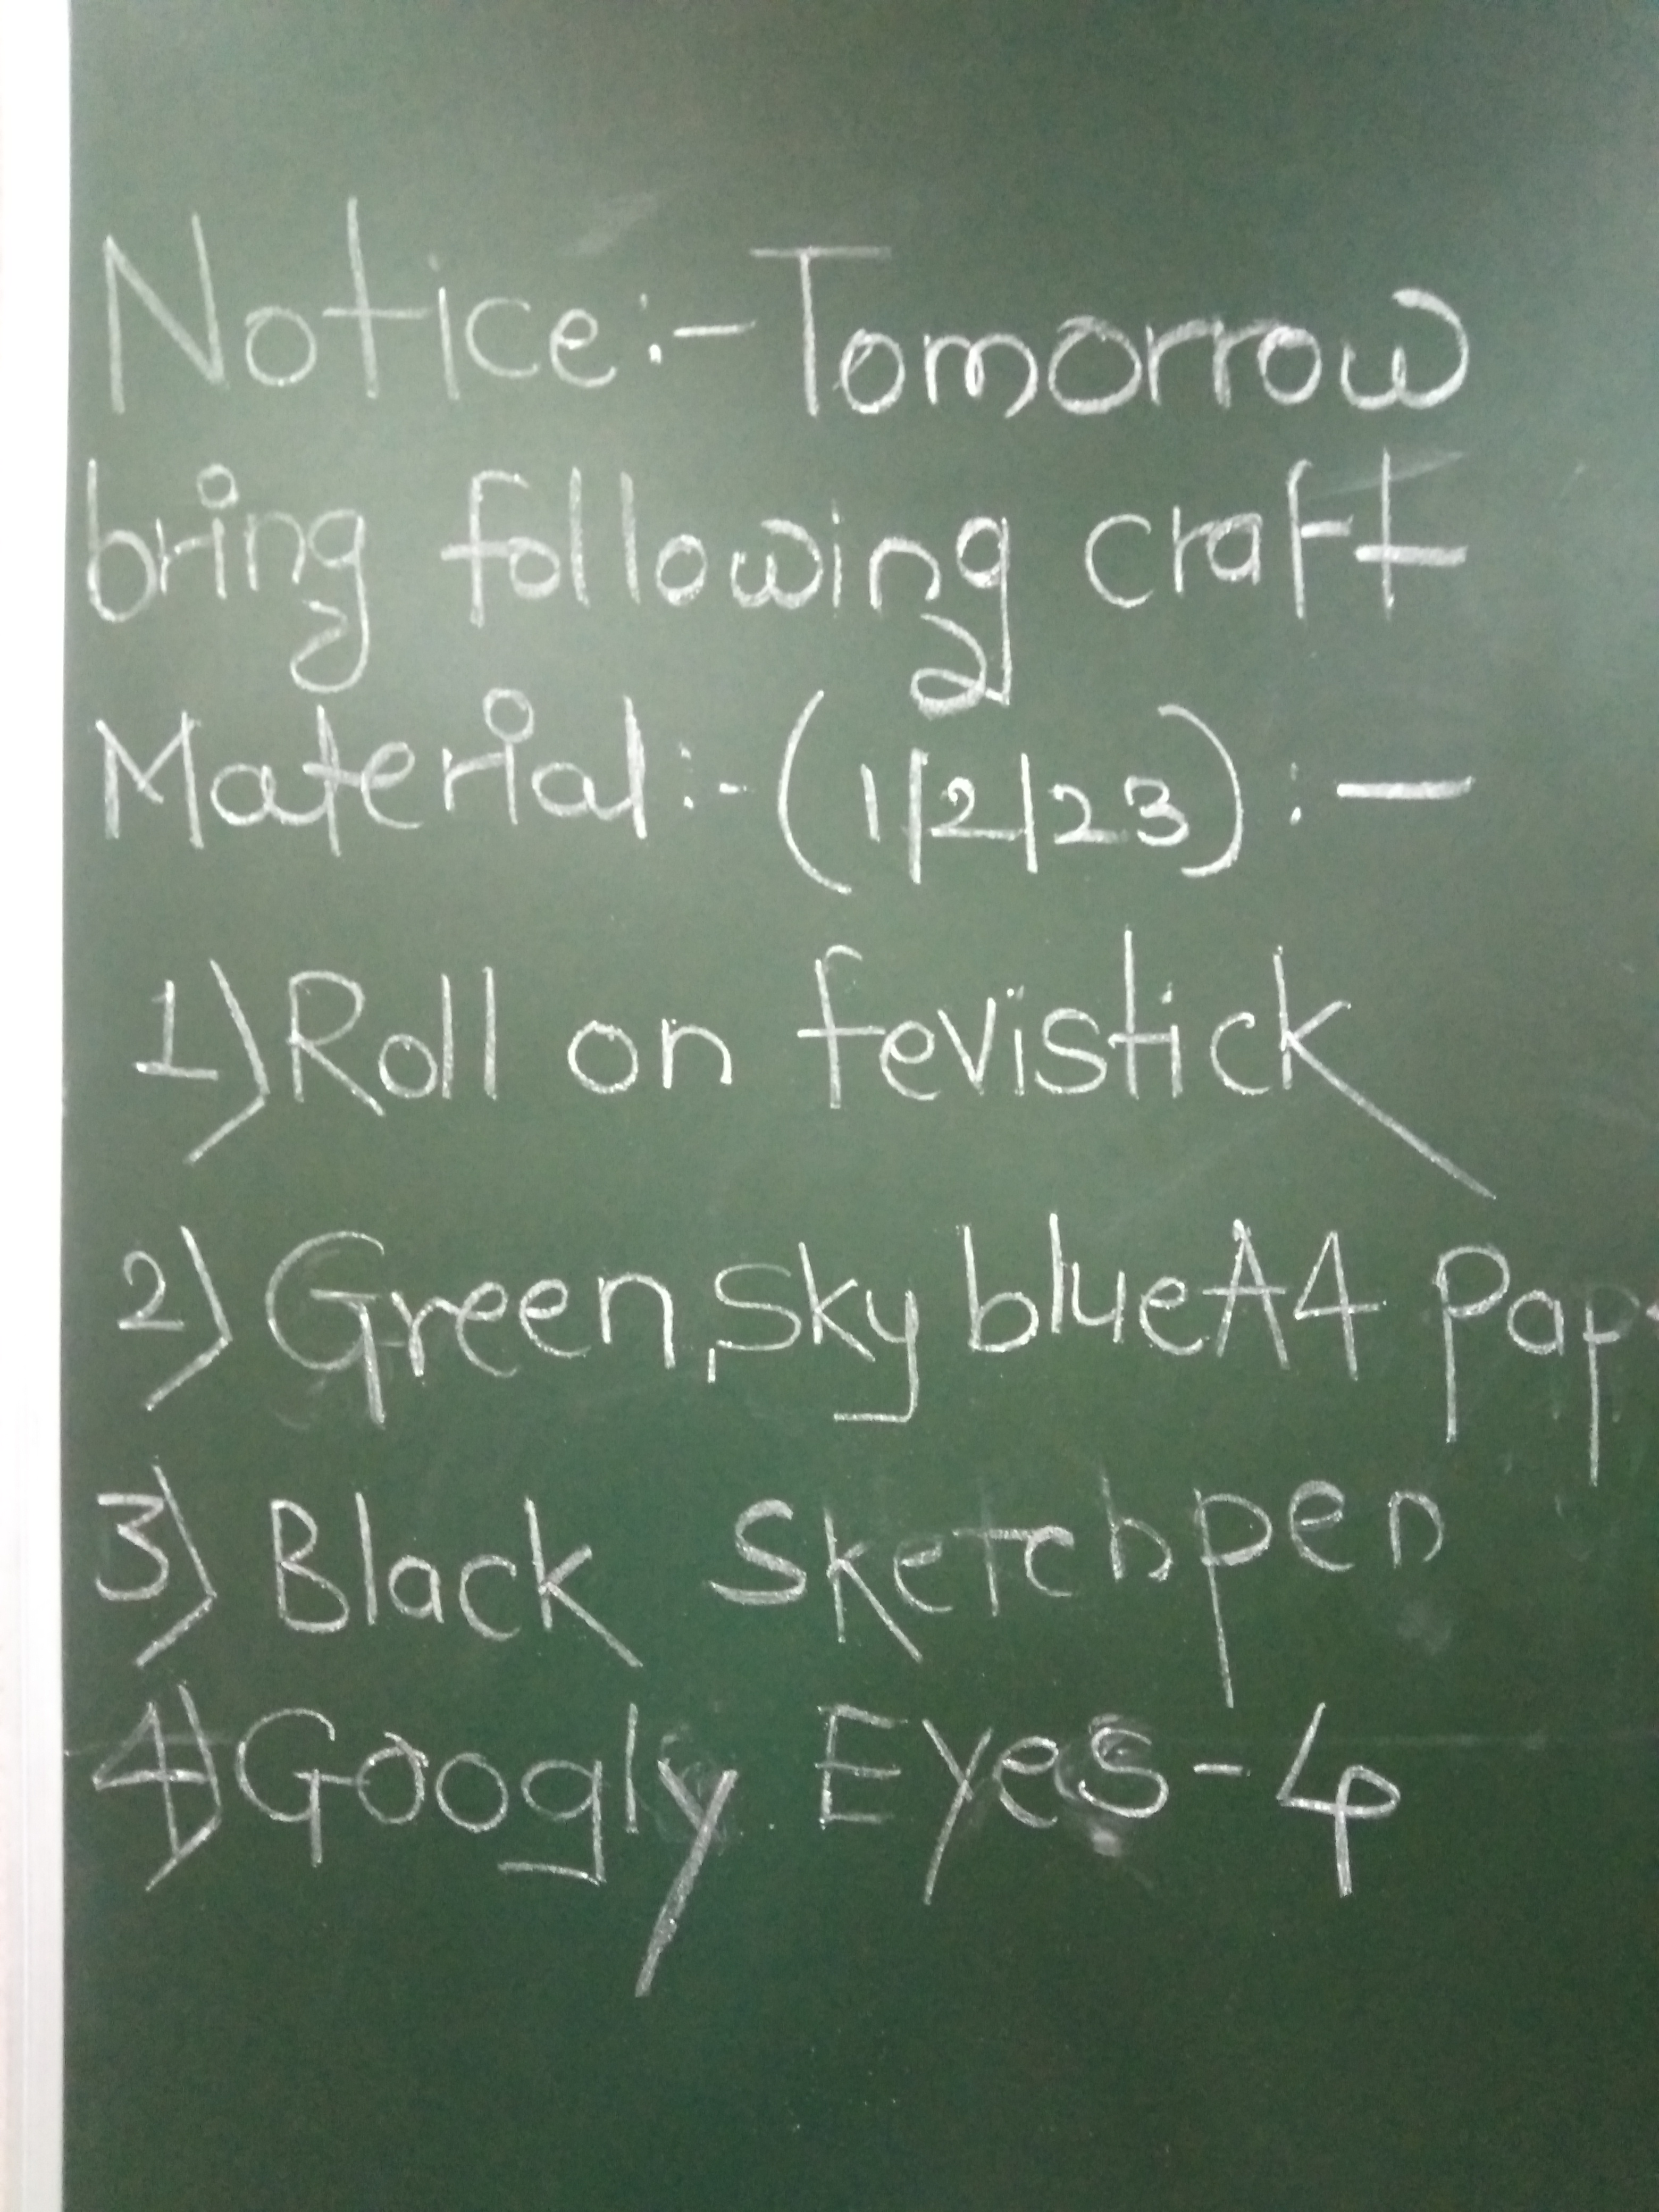 Notice:- Tomorrow
bring following craft
Material:- (1/2/23):-
1) Roll on fevistick
2) Green, Sky blue A4 Pap
3) Black Sketchpen
4) Googly Eyes - 4